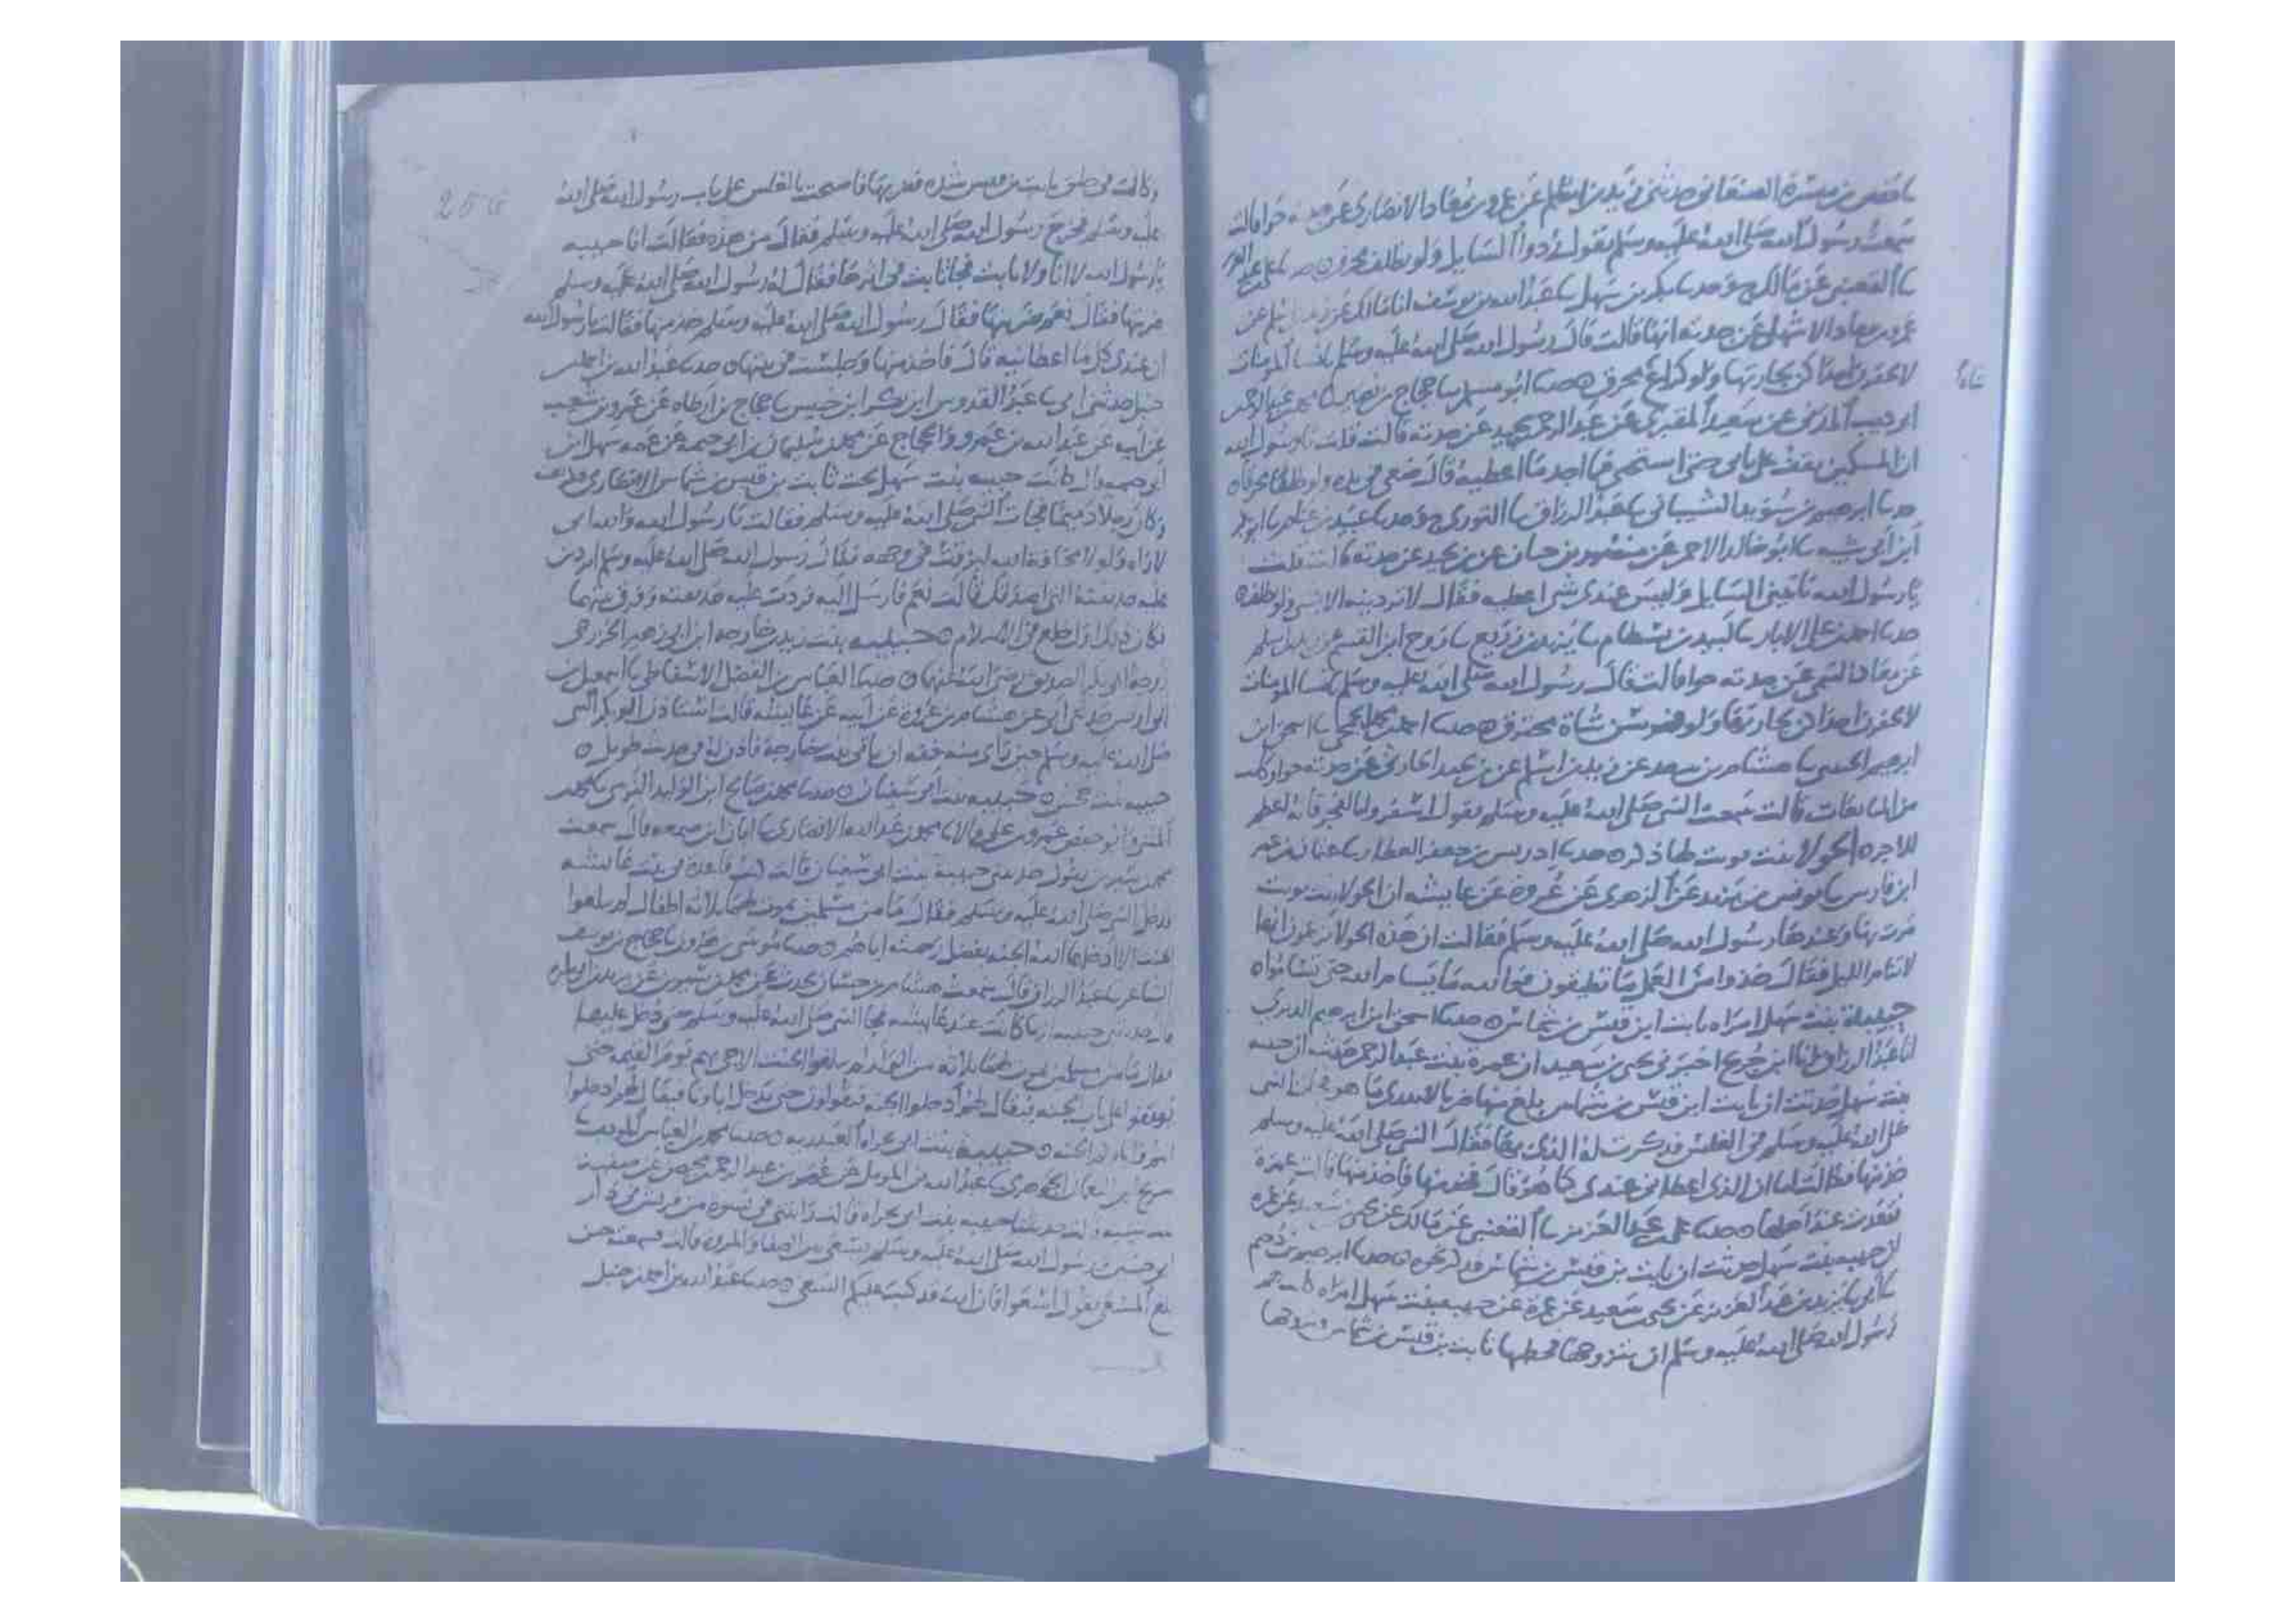 ثنا حفص بن ميسرة الصنعاني حدثني زيد بن اسلم عن عمرو بن معاذ الانصاري عن جدته حوا قالت
سمعت رسول الله صلى الله عليه وسلم يقول ردوا السايل ولو بظلف محرق حدثنا علي بن عبد العزيز
ثنا القعنبي عن مالك ح وحدثنا بكر بن سهل ثنا عبد الله بن يوسف انا مالك عن زيد بن اسلم عن
عمرو بن معاذ الاشهلي عن جدته انها قالت قال رسول الله صلى الله عليه وسلم يا نسا المومنات
لا تحقرن احداكن لجارتها ولو كراع محرق حدثنا ابو مسلم ثنا حجاج بن نصير
شاة
ابن ذيب المدني عن سعيد المقبري عن عبد الرحمن بن بجيد عن جدته قالت قلت يا رسول الله
ان المسكين يقف على بابي حتى استحي فما اجد ما اعطيه قال ضعي في يده ولو ظلفا محرقا
حدثنا ابرهيم بن سويد الشيباني ثنا عبد الرزاق ثنا الثوري ح وحدثنا عبيد بن غنام ثنا ابو بكر
ابن ابي شيبه ثنا ابو خالد الاحمر عن منصور بن حيان عن بن بجيد عن جدته قالت قلت
يا رسول الله ياتيني السايل وليس عندي شي اعطيه فقال لا ترديه الا بشي ولو ظلف
حدثنا احمد بن علي الابار ثنا اميه بن بسطام ثنا يزيد بن زريع ثنا روح ابن القسم عن زيد بن اسلم
عن معاذ التيمي عن جدته حوا قالت قال رسول الله صلى الله عليه وسلم يا نسا المومنات
لا تحقرن احداكن لجارتها ولو فرسن شاة محترق حدثنا احمد بن محمد الجمحي ثنا اسحق ابن
ابرهيم الحنيني ثنا هشام بن سعد عن زيد بن اسلم عن بن بجيد الحارثي عن جدته حوا وكانت
من المبايعات قالت سمعت النبي صلى الله عليه وسلم يقول اسفروا بالفجر فانه اعظم
للاجر الحولا بنت تويت لها ذكر حدثنا ادريس بن جعفر العطار ثنا عثمان بن عمر
ابن فارس ثنا يونس بن يزيد عن الزهري عن عروة عن عايشه ان الحولا بنت تويت
مرت بها وعندها رسول الله صلى الله عليه وسلم فقالت ان هذه الحولا يزعمون انها
لا تنام الليل فقال خذوا من العمل ما تطيقون فوالله ما يسام الله حتى تساموا
حبيبة بنت سهل امراه ثابت ابن قيس بن شماس حدثنا اسحق ابن ابرهيم الدبري
انا عبد الرزاق انا ابن جريج اخبرني يحيى بن سعيد ان عمرة بنت عبد الرحمن حدثته ان حبيبه
بنت سهل حدثت ان ثابت ابن قيس بن شماس بلغ منها ضربا لا يدري ما هو فجات النبي
صلى الله عليه وسلم في الغلس فذكرت له الذي بها فقال النبي صلى الله عليه وسلم
خذ منها فقالت اما ان الذي اعطاني عندي كما هو قال فخذ منها فاخذ منها قالت عمرة
فقعدت عند اهلها حدثنا علي بن عبد العزيز ثنا القعنبي عن مالك عن يحيى بن سعيد عن عمرة
ان حبيبه بنت سهل حدثت ان ثابت بن قيس بن شماس فذكر نحوه حدثنا ابرهيم بن دحيم
ثنا ابي ثنا يزيد بن عبد العزيز عن يحيى بن سعيد عن عمرة عن حبيبه بنت سهل امراه كانت هم
رسول الله صلى الله عليه وسلم ان يتزوجها فخطبها ثابت بن قيس بن شماس وتزوجها
256
وكانت في خلق ثابت بن قيس شده فضربها فاصبحت بالغلس على باب رسول الله صلى الله
عليه وسلم فخرج رسول الله صلى الله عليه وسلم فقال من هذه فقالت انا حبيبه
يا رسول الله لا انا ولا ثابت فجا ثابت في اثرها فقال له رسول الله صلى الله عليه وسلم
ضربتها فقال نعم ضربتها فقال رسول الله صلى الله عليه وسلم خذ منها فقالت يا رسول الله
ان عندي كل ما اعطانيه قال فاخذ منها وجلست في بيتها حدثنا عبد الله بن احمد بن
حنبل حدثني ابي ثنا عبد القدوس ابن بكر ابن خنيس ثنا حجاج بن ارطاه عن عمرو بن شعيب
عن ابيه عن عبد الله بن عمرو والحجاج عن محمد بن سليمان بن ابي حثمه عن عمه سهل ابن
ابي حثمه قال كانت حبيبه بنت سهل تحت ثابت بن قيس بن شماس الانصاري فكرهته
وكان رجلا دميما فجات النبي صلى الله عليه وسلم فقالت يا رسول الله والله اني
لاراه ولولا مخافة الله لبزقت في وجهه فقال رسول الله صلى الله عليه وسلم اتردين
عليه حديقته التي اصدقك قالت نعم فارسل اليه فردت عليه حديقته وفرق بينهما
فكان ذلك اول خلع في الاسلام حبيبه بنت زيد بن خارجه ابن ابي زهير الخزرجي
زوجة ابي بكر الصديق رضي الله عنها حدثنا العباس بن الفضل الاسفاطي ثنا اسمعيل بن
ابي اويس حدثني ابي عن هشام بن عروة عن ابيه عن عايشه قالت استاذن ابو بكر النبي
صلى الله عليه وسلم حين راى منه خفه ان ياتي بنت خارجة فاذن له في حديث طويل
حبيبه بنت جحش حبيبه بنت ابي سفيان حدثنا محمد بن صالح ابن الوليد النرسي ثنا محمد بن
المثنى وابو حفص عمرو بن علي قالا ثنا محمد بن عبد الله الانصاري ثنا ابان ابن صمعه قال سمعت
محمد بن سيرين يقول حدثتني حبيبة بنت ابي سفيان قالت كنت قاعدة في بيت عايشه
فدخل النبي صلى الله عليه وسلم فقال ما من مسلمين يموت لهما ثلاثه اطفال لم يبلغوا
الحنث الا ادخلهما الله الجنه بفضل رحمته اياهم حدثنا موسى بن هارون ثنا حجاج بن يوسف
الشاعر ثنا عبد الرزاق قال سمعت هشام بن حسان يحدث عن محمد بن سيرين عن يزيد بن ابي بكره
قال حدثتني حبيبه انها كانت عند عايشه فجا النبي صلى الله عليه وسلم حتى دخل عليها
فقال ما من مسلمين يموت لهما ثلاثه من الولد لم يبلغوا الحنث الا جي بهم يوم القيمه حتى
يوقفوا على باب الجنه فيقال لهم ادخلوا الجنه فيقولون حتى يدخل اباونا فيقال لهم ادخلوا
انتم واباوكم الجنه حبيبة بنت ابي تجراه العبدريه حدثنا محمد بن العباس المودب ثنا
سريج ابن النعمان الجوهري ثنا عبد الله بن المومل عن عمر بن عبد الرحمن بن محيصن عن صفيه
بنت شيبه قالت حدثتنا حبيبه بنت ابي تجراه قالت رايتني في نسوة من قريش في دار
ابي حسين رسول الله صلى الله عليه وسلم يسعى بين الصفا والمروه قالت فسمعته حين
بلغ المسعى يقول اسعوا فان الله قد كتب عليكم السعي حدثنا عبد الله بن احمد بن حنبل